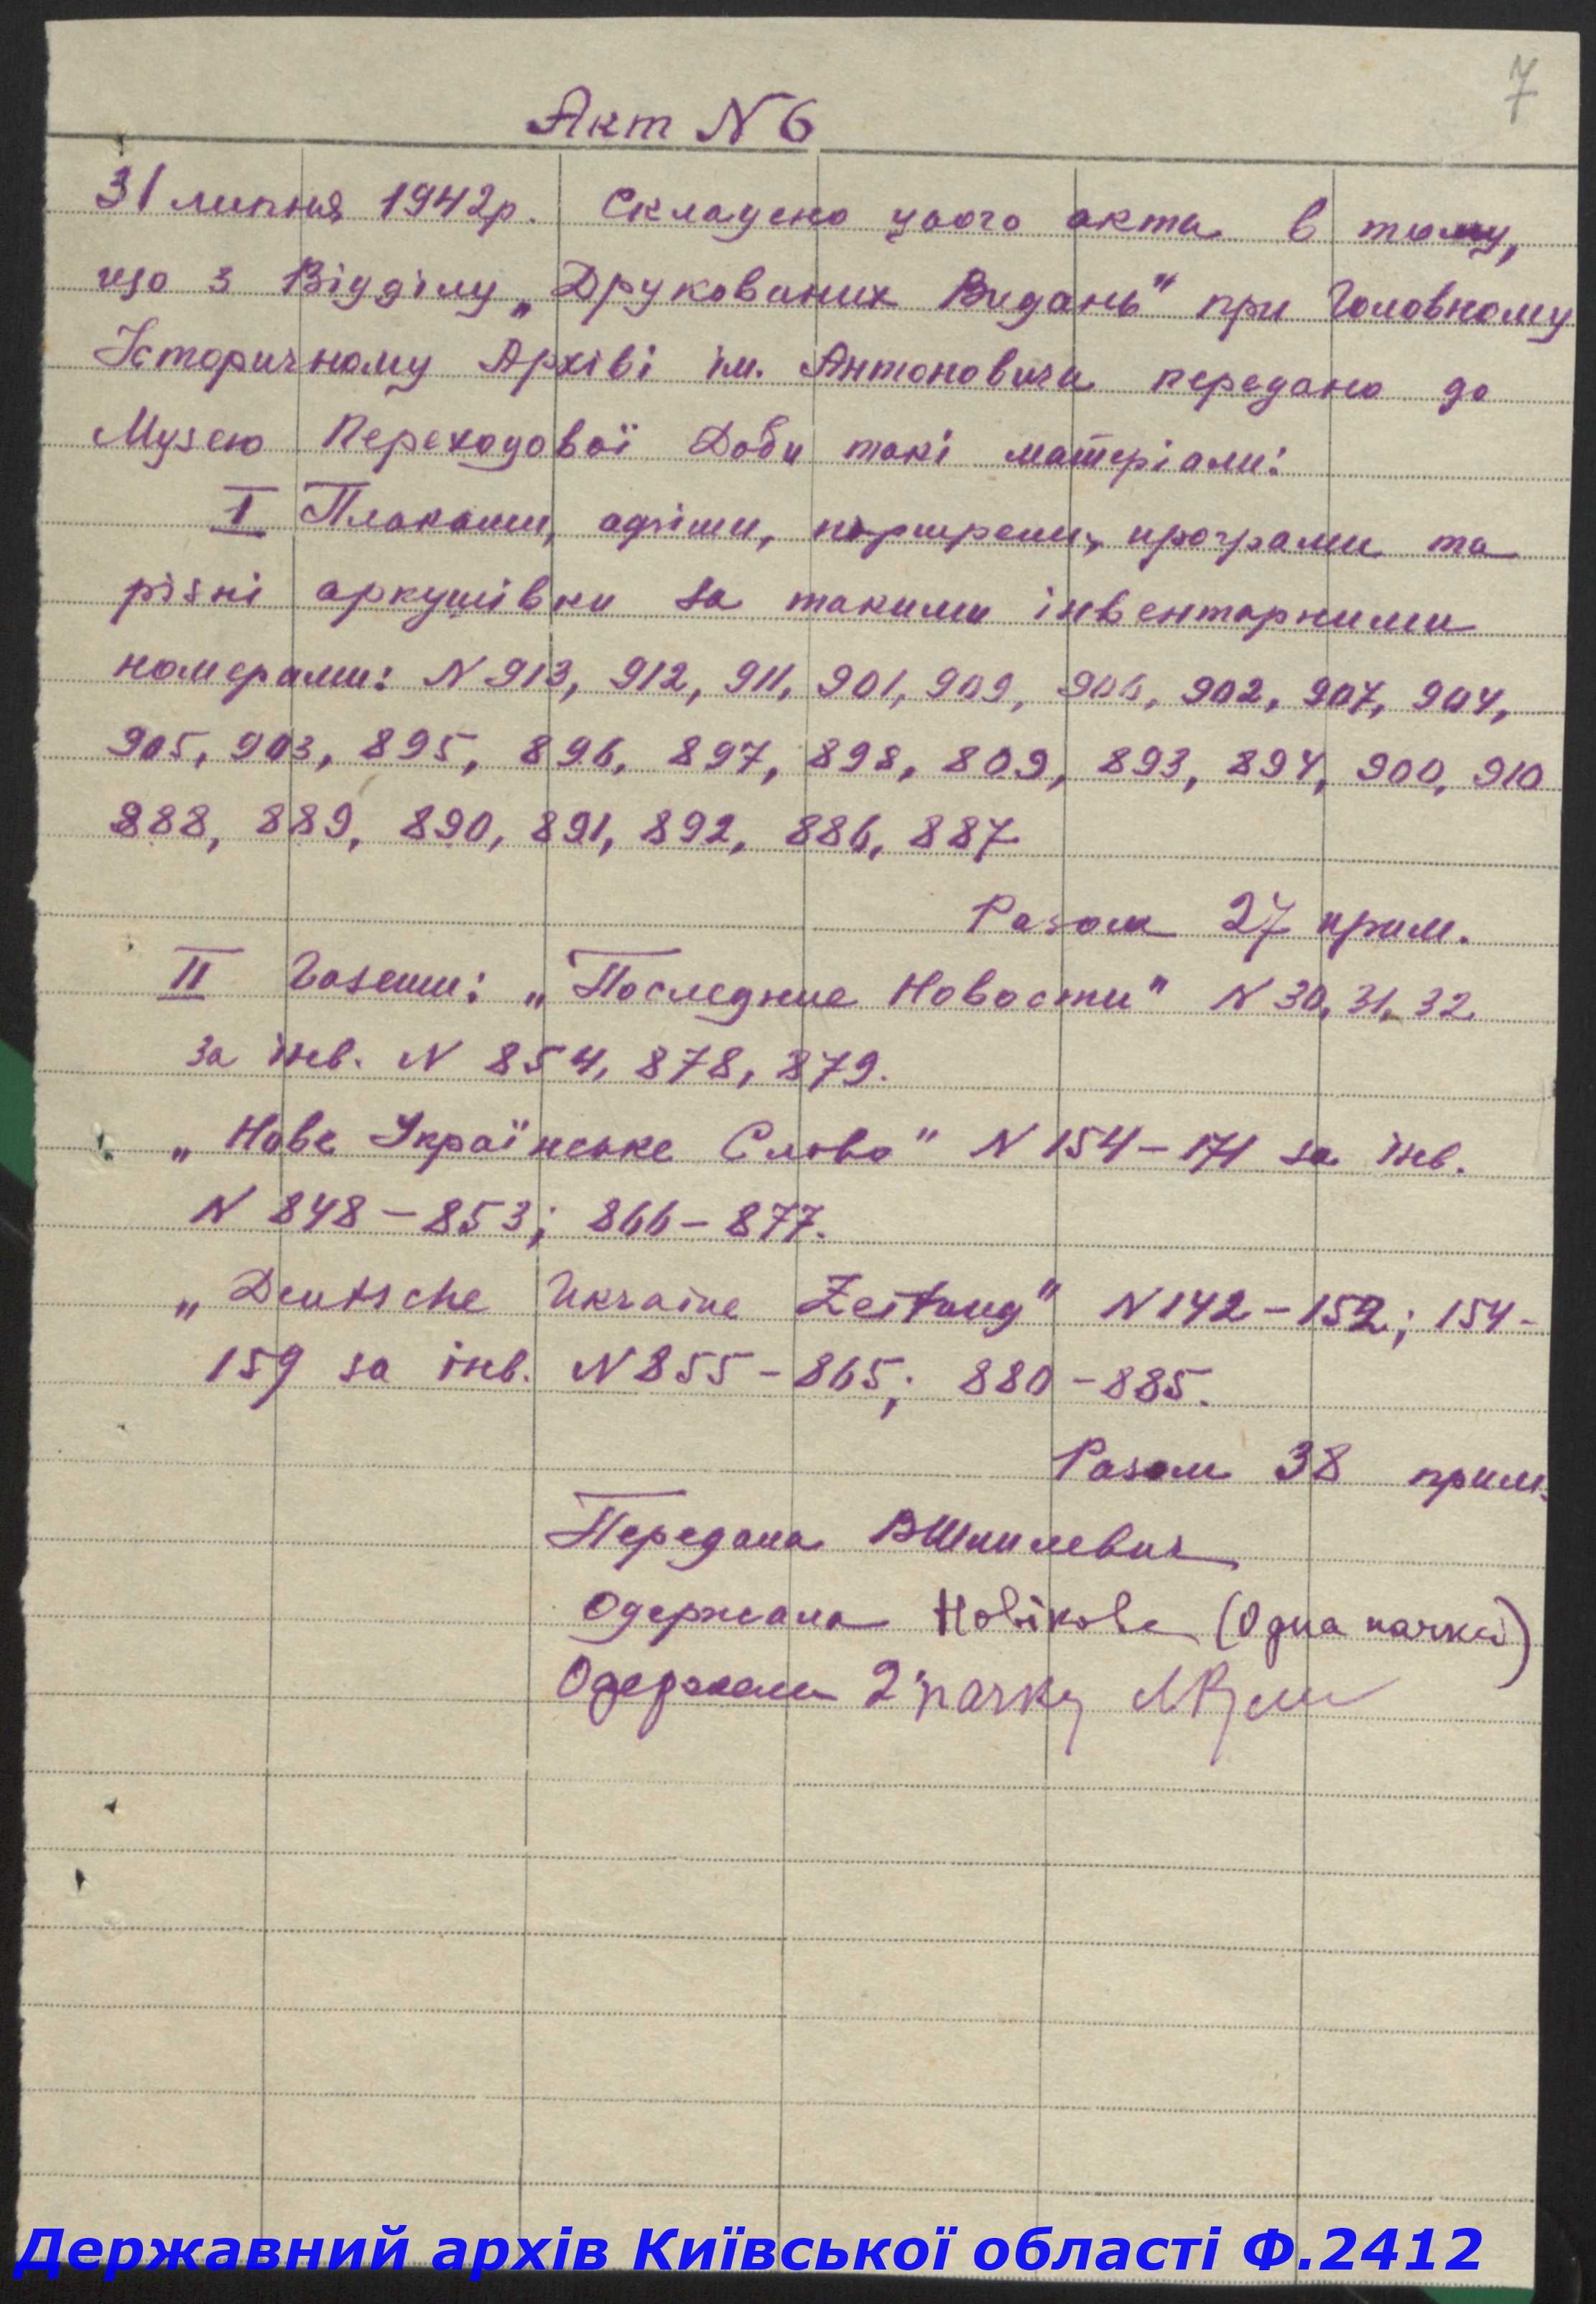 7
Акт N 6
31 липня 1942р. Складено цього акта в тому,
що з Відділу „Друкованих Видань" при Головному
Історичному Архіві ім. Антоновича передано до
Музею Переходової Доби такі матеріали:
I Плакати, афіши, портрети, програми та
різні аркушівки за такими інвентарними
номерами: N 913, 912, 911, 901, 909, 906, 902, 907, 904,
905, 903, 895, 896, 897, 898, 809, 893, 894, 900, 910
888, 889, 890, 891, 892, 886, 887
Разом 27 прим.
II Газети: „Последние Новости" N 30, 31, 32
за інв. N 854, 878, 879.
„Нове Українське Слово" N 154-171 за інв.
N 848-853; 866-877.
„Deutsche Ukraine Zeitung" N 142-152; 154-
159 за інв. N 855-865; 880-885.
Разом 38 прим.
Передала ВШпилевич
Одержала Новікова (Одна пачка)
Одержали 2 пачку
Державний архів Київської області Ф.2412